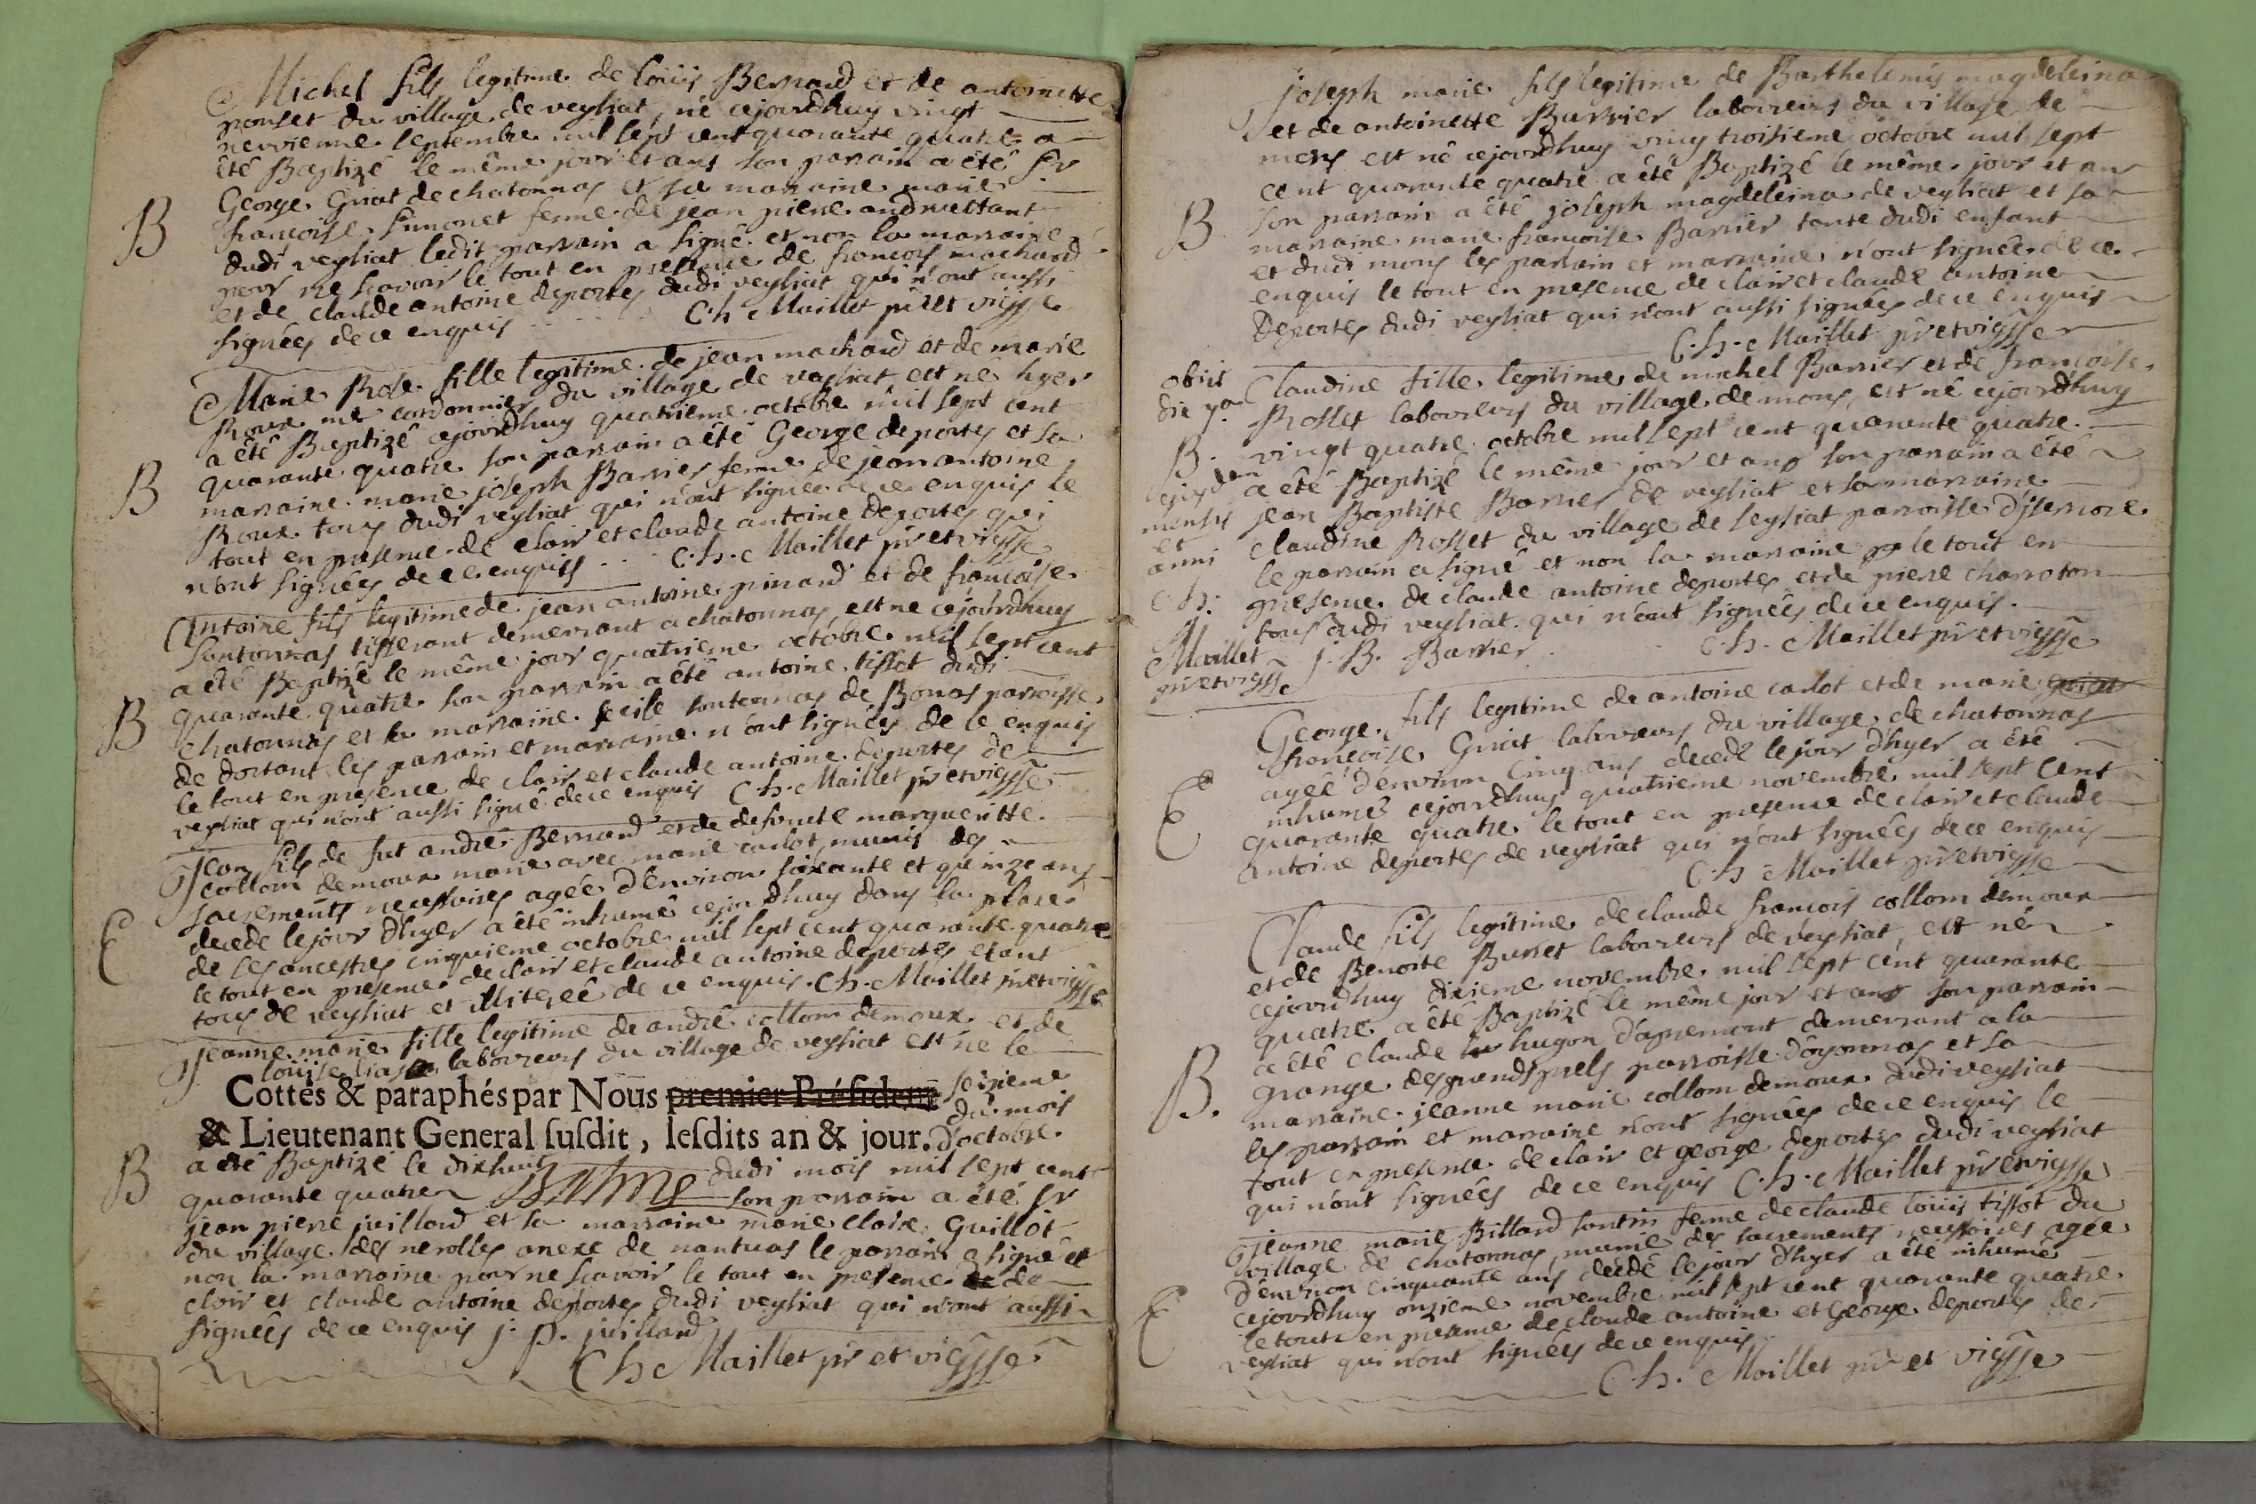 Michel fils legitime de loüis Bernard et de antoinette
ponset du village de veyliat, né cejourdhuy vingt
neuvieme septembre mil sept cent quarante quatre a
été Baptizé le même jour et ans son parrain a été sr
George Griat de chatonnas et sa marraine marie
B
francoise humonet femme de jean pierre andrettant
dudi veyliat ledit parrain a signé et non la marraine
pour ne scavoir le tout en presence de francois machard
et de claude antoine deportes dudi veyliat qui n'ont aussi
signées de ce enquis C. h. Maillet ptre et viesse
Marie Rose fille legitime de jean machard et de marie
Roux me cordonnier du village de veyliat est né hyer
a été Baptizé cejourdhuy quatrieme octobre mil sept cent
quarante quatre son parrain a été George deportes et sa
B
marraine marie joseph Barrier femme de jean antoine
Roux tous dudi veyliat qui n'ont signée de ce enquis le
tout en presence de clair et claude antoine deportes qui
n'ont signées de ce enquis C. h. Maillet ptre et viesse
Antoine fils legitime de jean antoine pinard et de francoise
sontonnas tisserant demeurant a chatonnas est ne cejourdhuy
a été Baptizé le même jour quatrieme octobre mil sept cent
quarante quatre son parrain a été antoine tissot dudi
B
chatonnas et la marraine cecile sontonnas de Bonas parroisse
de dortant les parrain et marraine n'ont signées de ce enquis
le tout en presence de clair et claude antoine deportes de
veyliat qui n'ont aussi signé de ce enquis C. h. Maillet ptre et viesse
Jean fils de fut andré Bernard et de defunte margueritte
collom demoux marié avec marie carlot, munis des
sacrements necessaires agée d'environ soixante et quinze ans
decede le jour d'hyer a été inhumé cejourdhuy dans la place
E
de ses ancestres cinquieme octobre mil sept cent quarante quatre
le tout en presence de clair et claude antoine deportes etant
tous de veyliat et illiterée de ce enquis. C. h. Maillet ptre et viesse
Jeanne marie fille legitime de andré collom demoux et de
loüise lias laboureurs du village de veyliat est né le
Cottés & paraphés par Nous premier Président seizieme
du mois
& Lieutenant General susdit, lesdits an & jour. d'octobre.
B
a été Baptizé le dixhuit dudi mois mil sept cent
quarante quatre son parrain a été sr
jean pierre juillard et sa marraine marie claire Guillot
du village des nerolles anexe de nantuas le parrain a signé et
non la marraine pour ne scavoir le tout en presence de
clair et claude antoine deportes dudi veyliat qui n'ont aussi
signées de ce enquis j. p. juillard
C h Maillet ptr et viesse
joseph marie fils legitime de Barthelemis magdeleina
et de antoinette Burrier laboureurs du village de
mons est né cejourdhuy vingt troisieme octobre mil sept
cent quarante quatre a été Baptizé le même jour et an
B
son parrain a été joseph magdeleina de veyliat et sa
marraine marie francoise Barrier tante dudi enfant
et dudi mons les parrain et marraine n'ont signées de ce
enquis le tout en presence de clair et claude antoine
Deportes dudi veyliat qui n'ont aussi signées de ce enquis
C. h. Maillet ptr et viesse
obiit
die 7a
B.
ejusdem
mensis
et
anni
C. h.
Maillet
ptr et viesse
Claudine fille legitime de michel Barrier et de francoise
Rosset laboureurs du village de mons, est né cejourdhuy
vingt quatre octobre mil sept cent quarante quatre
a été Baptizé le même jour et ans son parrain a été
jean Baptiste Barrier de veyliat et sa marraine
claudine Rosset du village de seyliat parroisse d'jsernore
le parrain a signé et non la marraine le tout en
presence de claude antoine deportes et de pierre charroton
tous dudi veyliat qui n'ont signées de ce enquis.
j. B. Barrier C. h. Maillet ptr et viesse
George fils legitime de antoine carlot et de marie
francoise Griat laboureurs du village de chatonnas
agée d'environ cinq ans decedé le jour d'hyer a été
inhumé cejourdhuy quatrieme novembre mil sept cent
E
quarante quatre le tout en presence de clair et claude
antoine deportes de veyliat qui n'ont signées de ce enquis
C. h Maillet ptr et viesse
Claude fils legitime de claude francois collom demoux
et de Benoite Burret laboureurs de veyliat, est né
cejourdhuy dixieme novembre mil sept cent quarante
quatre a été Baptizé le même jour et ans son parrain
a été claude hugon d'apremont demeurant a la
B.
grange des grands prels parroisse d'oyonnas et sa
marraine jeanne marie collom demoux dudi veyliat
les parrain et marraine n'ont signées de ce enquis le
tout en presence de clair et george deportes dudi veyliat
qui n'ont signées de ce enquis C. h. Maillet ptr et viesse
jeanne marie Billard sontin femme de claude loüis tissot du
village de chatonnas, munie des sacrements necessaires agée
d'environ cinquante ans, decedé le jour d'hyer a été inhumé
E
cejourdhuy onzieme novembre mil sept cent quarante quatre
le tout en presence de claude antoine et George deportes de
veyliat qui n'ont signées de ce enquis
C. h. Maillet ptr et viesse